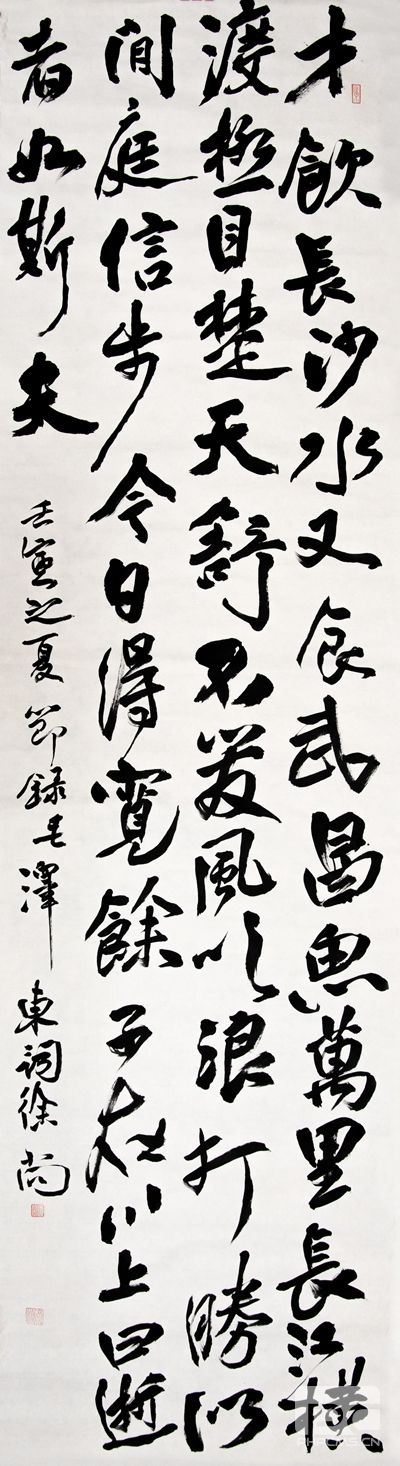 才飲長沙水又食武昌魚萬里長江橫
渡極目楚天舒不管風吹浪打勝似
閒庭信步今日得寬餘子在川上曰逝
者如斯夫
壬寅之夏節錄毛澤東詞徐尚